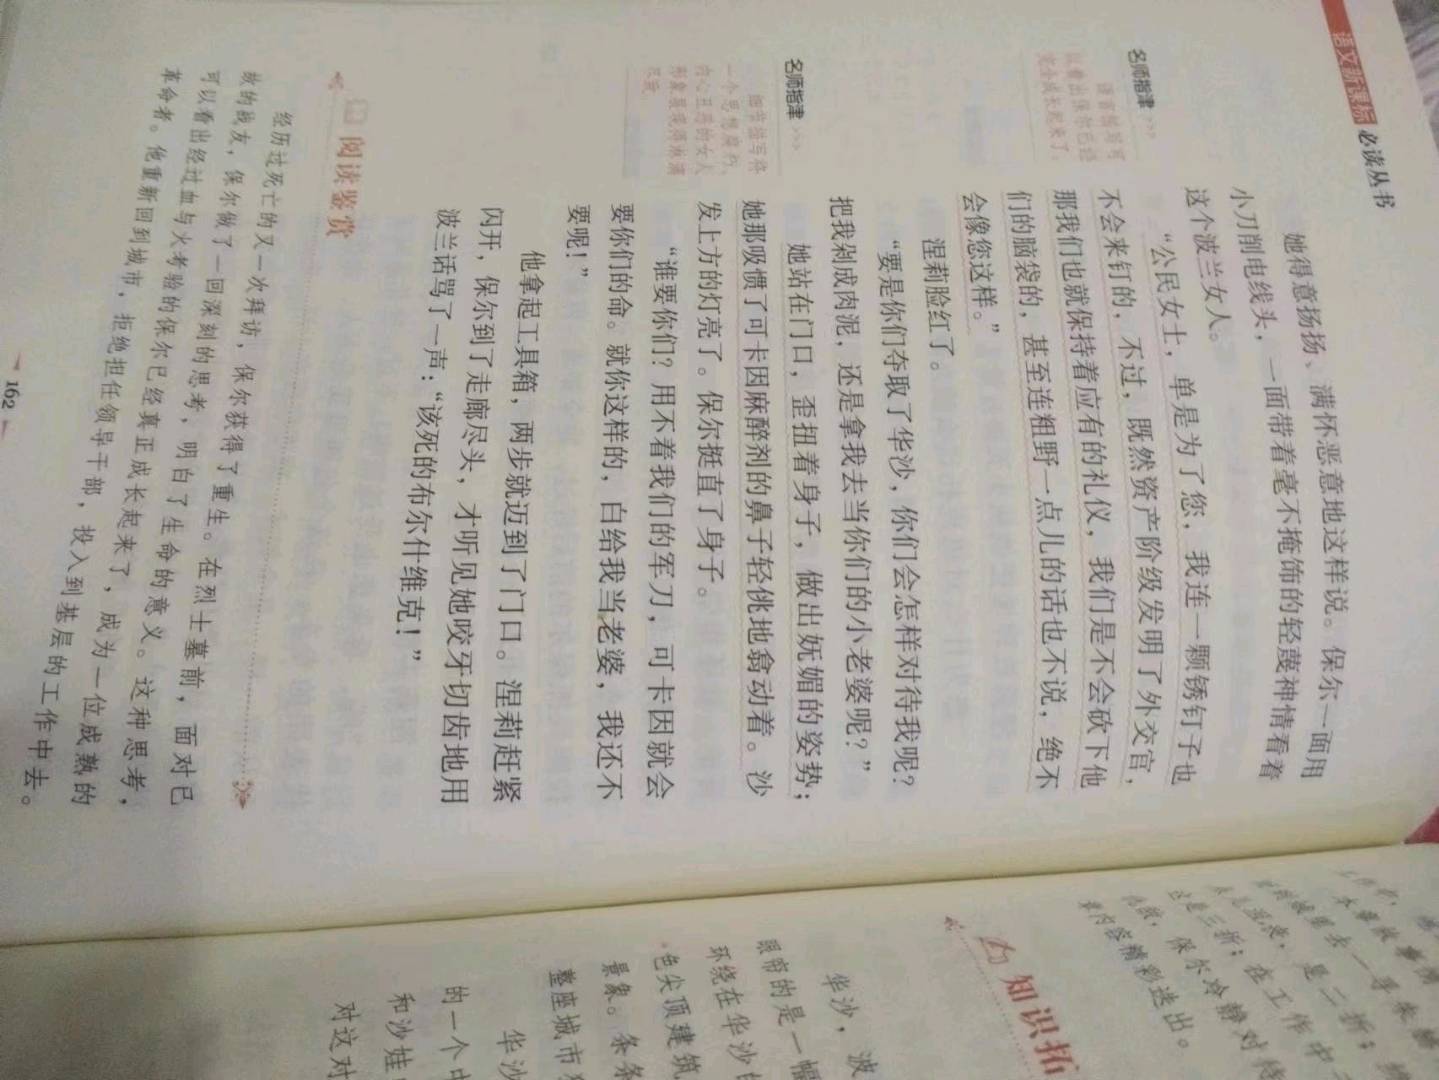 语文新课标 必读丛书
她得意扬扬、满怀恶意地这样说。保尔一面用
小刀削电线头，一面带着毫不掩饰的轻蔑神情看着
这个波兰女人。
“公民女士，单是为了您，我连一颗锈钉子也
不会来钉的，不过，既然资产阶级发明了外交官，
那我们也就保持着应有的礼仪，我们是不会砍下他
们的脑袋的，甚至连粗野一点儿的话也不说，绝不
会像您这样。”
涅莉脸红了。
“要是你们夺取了华沙，你们会怎样对待我呢？
把我剁成肉泥，还是拿我去当你们的小老婆呢？”
她站在门口，歪扭着身子，做出妩媚的姿势；
她那吸惯了可卡因麻醉剂的鼻子轻佻地翕动着。沙
发上方的灯亮了。保尔挺直了身子。
“谁要你们？用不着我们的军刀，可卡因就会
要你们的命。就你这样的，白给我当老婆，我还不
要呢！”
他拿起工具箱，两步就迈到了门口。涅莉赶紧
闪开，保尔到了走廊尽头，才听见她咬牙切齿地用
波兰话骂了一声：“该死的布尔什维克！”
名师指津 >>>
语言描写可
以看出保尔已经
完全成长起来了。
名师指津 >>>
细节描写将
一个思想腐朽、
内心丑恶的女人
形象展现得淋漓
尽致。
阅读鉴赏
经历过死亡的又一次拜访，保尔获得了重生。在烈士墓前，面对已
故的战友，保尔做了一回深刻的思考，明白了生命的意义。这种思考，
可以看出经过血与火考验的保尔已经真正成长起来了，成为一位成熟的
革命者。他重新回到城市，拒绝担任领导干部，投入到基层的工作中去。
162
保尔冷静对待
章内容精彩迭出。
知识拓
华沙，波
眼帘的是一幅
环绕在华沙的
色尖顶建筑
景象。条条
整座城市
华沙
的一个中
和沙娃
对这对